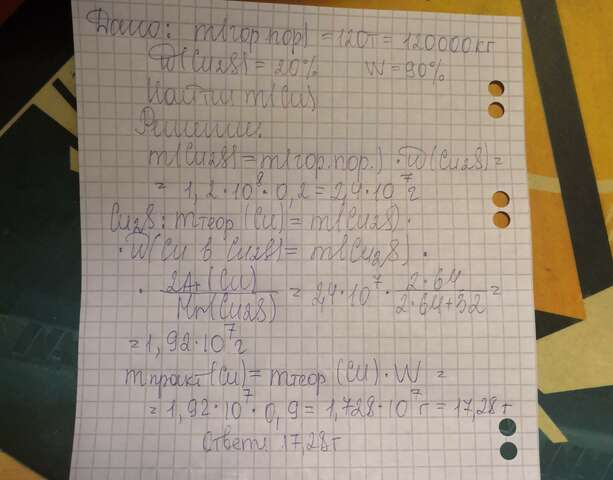 Дано: m(гор.пор) = 120т = 120000кг
W(Cu2S) = 20% W = 90%
Найти m(Cu)
Решение:
m(Cu2S) = m(гор.пор.) · W(Cu2S) =
= 1,2·10⁸·0,2 = 2,4·10⁷г
Cu2S: mтеор(Cu) = m(Cu2S) ·
· W(Cu в Cu2S) = m(Cu2S) ·
· 2Ar(Cu) / Mr(Cu2S) = 2,4·10⁷ · 2·64 / 2·64+32 =
= 1,92·10⁷г
mпракт(Cu) = mтеор(Cu) · W =
= 1,92·10⁷·0,9 = 1,728·10⁷г = 17,28т
Ответ: 17,28т